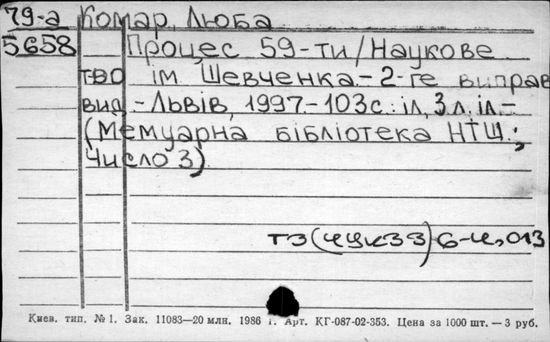 79-а Комар, Люба
5658 Процес 59-ти/Наукове
т-во ім. Шевченка.-2-ге виправ
вид.-Львів, 1997-103с. іл, 3л. іл.-
(Мемуарна бібліотека НТШ.;
Число 3)
Т3(4УКЗЗ)6-4,013
Киев. тип. № 1. Зак. 11083—20 млн. 1986 г. Арт. КГ-087-02-353. Цена за 1000 шт. — 3 руб.